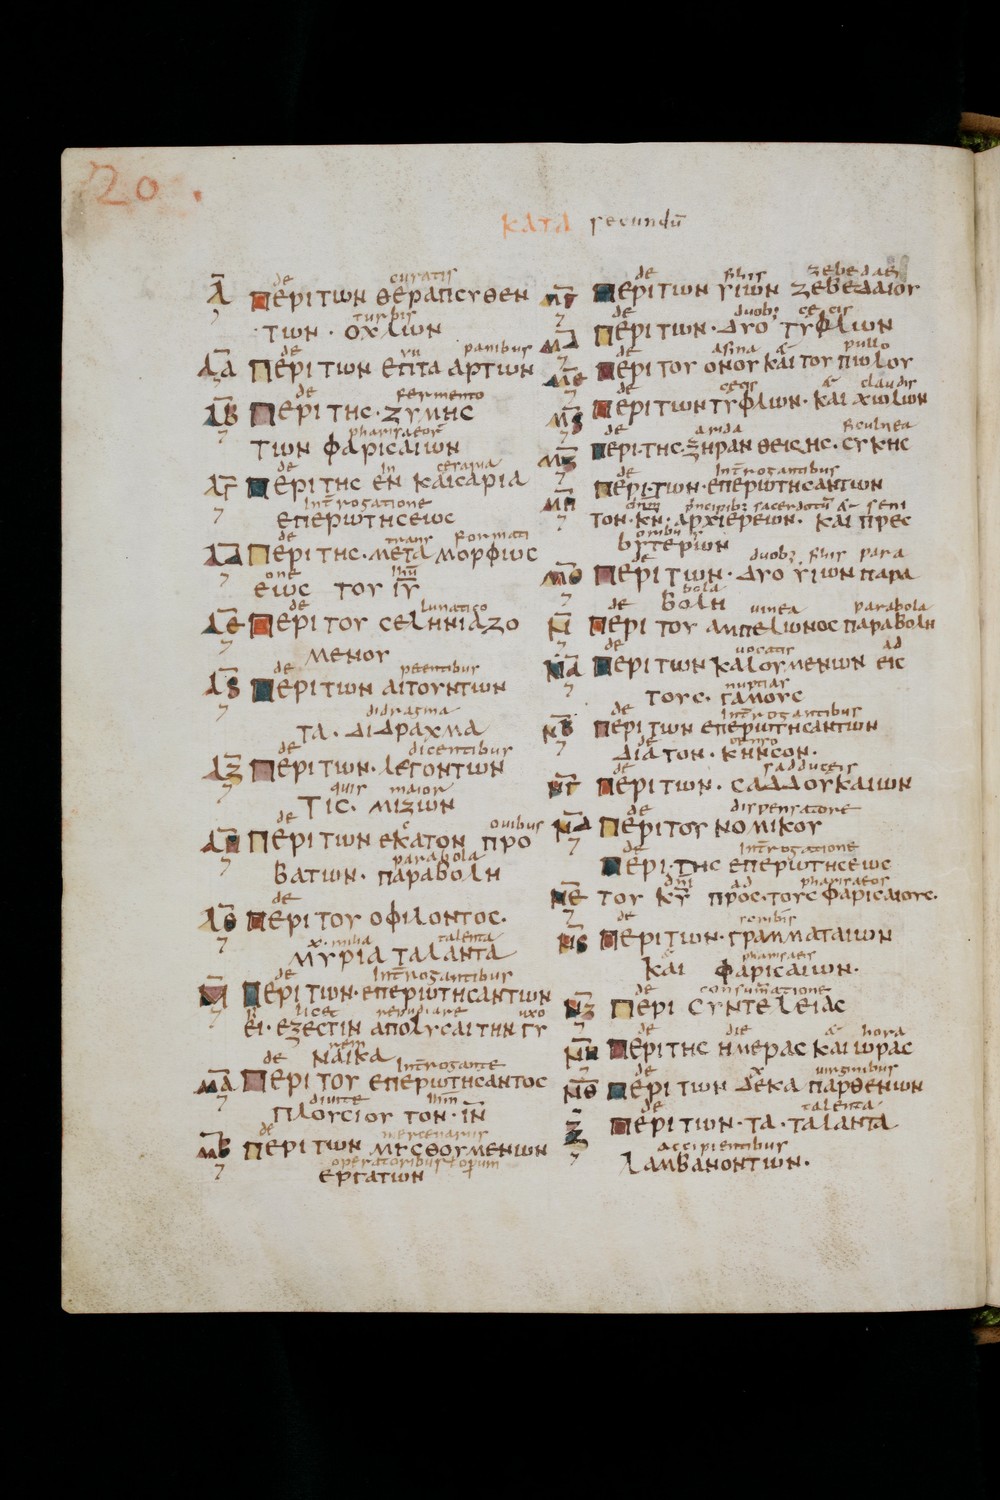 20.
ΚΑΤΑ secundū
de curatis
Λ ΠΕΡΙ ΤΩΝ ΘΕΡΑΠΕΥΘΕΝ
turbis
ΤΩΝ · ΟΧΛΩΝ
de panibus
ΛΑ ΠΕΡΙ ΤΩΝ ΕΠΤΑ ΑΡΤΩΝ
de fermento
ΛΒ ΠΕΡΙ ΤΗΣ · ΖΥΜΗΣ
phariseorū
ΤΩΝ ΦΑΡΙΣΑΙΩΝ
de in cesaria
ΛΓ ΠΕΡΙ ΤΗΣ ΕΝ ΚΑΙΣΑΡΙΑ
int̄rogatione
ΕΠΕΡΩΤΗΣΕΩΣ
de trans formati
ΛΔ ΠΕΡΙ ΤΗΣ · ΜΕΤΑ ΜΟΡΦΩΣ
one ihū
ΕΩΣ ΤΟΥ ΙΥ
de lunatico
ΛΕ ΠΕΡΙ ΤΟΥ ΣΕΛΗΝΙΑΖΟ
ΜΕΝΟΥ
de petentibus
ΛS ΠΕΡΙ ΤΩΝ ΑΙΤΟΥΝΤΩΝ
didragma
ΤΑ · ΔΙΔΡΑΧΜΑ
de dicentibus
ΛΖ ΠΕΡΙ ΤΩΝ · ΛΕΓΟΝΤΩΝ
quis maior
ΤΙΣ · ΜΙΖΩΝ
de ouibus
ΛΗ ΠΕΡΙ ΤΩΝ ΕΚΑΤΟΝ ΠΡΟ
parabola
ΒΑΤΩΝ · ΠΑΡΑΒΟΛΗ
de
ΛΘ ΠΕΡΙ ΤΟΥ ΟΦΙΛΟΝΤΟΣ ·
x · milia talenta
ΜΥΡΙΑ ΤΑΛΑΝΤΑ
de int̄rogantibus
Μ ΠΕΡΙ ΤΩΝ · ΕΠΕΡΩΤΗΣΑΝΤΩΝ
si licet repudiare uxo
ΕΙ · ΕΞΕΣΤΙΝ ΑΠΟΛΥΣΑΙ ΤΗΝ ΓΥ
rem
ΝΑΙΚΑ
de int̄rogante
ΜΑ ΠΕΡΙ ΤΟΥ ΕΠΕΡΩΤΗΣΑΝΤΟΣ
diuite ihm
ΠΛΟΥΣΙΟΥ ΤΟΝ · ΙΝ
de mercenariis
ΜΒ ΠΕΡΙ ΤΩΝ ΜΙΣΘΟΥΜΕΝΩΝ
operatoribus
ΕΡΓΑΤΩΝ
de filiis zebedaei
ΜΓ ΠΕΡΙ ΤΩΝ ΥΙΩΝ ΖΕΒΕΔΑΙΟΥ
de duobꝫ cecis
ΜΔ ΠΕΡΙ ΤΩΝ · ΔΥΟ ΤΥΦΛΩΝ
de asina & pullo
ΜΕ ΠΕΡΙ ΤΟΥ ΟΝΟΥ ΚΑΙ ΤΟΥ ΠΩΛΟΥ
de cecis & claudis
ΜS ΠΕΡΙ ΤΩΝ ΤΥΦΛΩΝ · ΚΑΙ ΧΩΛΩΝ
de arida ficulnea
ΜΖ ΠΕΡΙ · ΤΗΣ · ΞΗΡΑΝΘΕΙΣΗΣ · ΣΥΚΗΣ
de int̄rogantibus
ΜΗ ΠΕΡΙ · ΤΩΝ · ΕΠΕΡΩΤΗΣΑΝΤΩΝ
pncipibꝫ sacerdotū & seni
ΤΟΝ · ΚΝ · ΑΡΧΙΕΡΕΩΝ · ΚΑΙ ΠΡΕΣ
oribus
ΒΥΤΕΡΩΝ
de duobꝫ filiis para
ΜΘ ΠΕΡΙ ΤΩΝ · ΔΥΟ ΥΙΩΝ ΠΑΡΑ
bola
ΒΟΛΗ
de uinea parabola
Ν ΠΕΡΙ ΤΟΥ ΑΜΠΕΛΩΝΟΣ ΠΑΡΑΒΟΛΗ
de uocatis ad
ΝΑ ΠΕΡΙ ΤΩΝ ΚΑΛΟΥΜΕΝΩΝ ΕΙΣ
nuptias
ΤΟΥΣ · ΓΑΜΟΥΣ
de int̄rogantibus
ΝΒ ΠΕΡΙ ΤΩΝ ΕΠΕΡΩΤΗΣΑΝΤΩΝ
de censo
ΔΙΑ ΤΟΝ · ΚΗΝΣΟΝ ·
de sadduceis
ΝΓ ΠΕΡΙ ΤΩΝ · ΣΑΔΔΟΥΚΑΙΩΝ
de dispensatore
ΝΔ ΠΕΡΙ ΤΟΥ ΝΟΜΙΚΟΥ
de int̄rogatione
ΠΕΡΙ · ΤΗΣ ΕΠΕΡΩΤΗΣΕΩΣ
dni ad phariseos
ΝΕ ΤΟΥ ΚΥ ΠΡΟΣ · ΤΟΥΣ ΦΑΡΙΣΑΙΟΥΣ ·
de scribis
ΝS ΠΕΡΙ ΤΩΝ · ΓΡΑΜΜΑΤΑΙΩΝ
& phariseis
ΚΑΙ ΦΑΡΙΣΑΙΩΝ ·
de consum̄atione
ΝΖ ΠΕΡΙ ΣΥΝΤΕΛΕΙΑΣ
de die & hora
ΝΗ ΠΕΡΙ ΤΗΣ ΗΜΕΡΑΣ ΚΑΙ ΩΡΑΣ
de x uirginibus
ΝΘ ΠΕΡΙ ΤΩΝ ΔΕΚΑ ΠΑΡΘΕΝΩΝ
de talenta
Ξ ΠΕΡΙ ΤΩΝ · ΤΑ · ΤΑΛΑΝΤΑ
accipientibus
ΛΑΜΒΑΝΟΝΤΩΝ ·